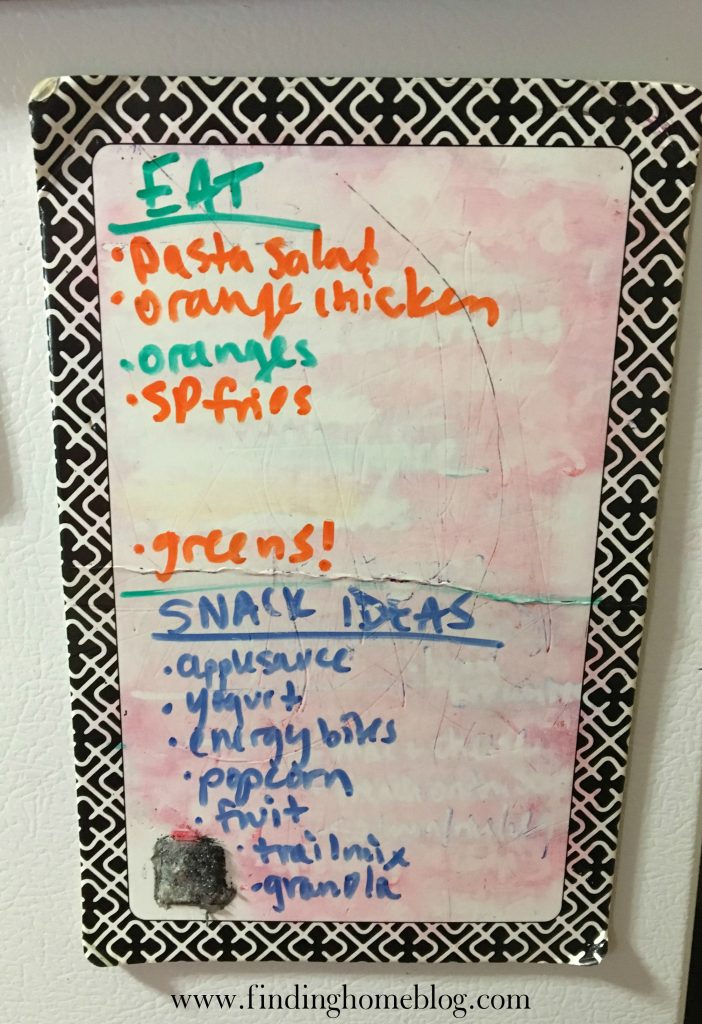 EAT
• pasta salad
• orange chicken
• oranges
• SP fries
• greens!
SNACK IDEAS
• applesauce
• yogurt
• energy bites
• popcorn
• fruit
• trail mix
• granola
www.findinghomeblog.com